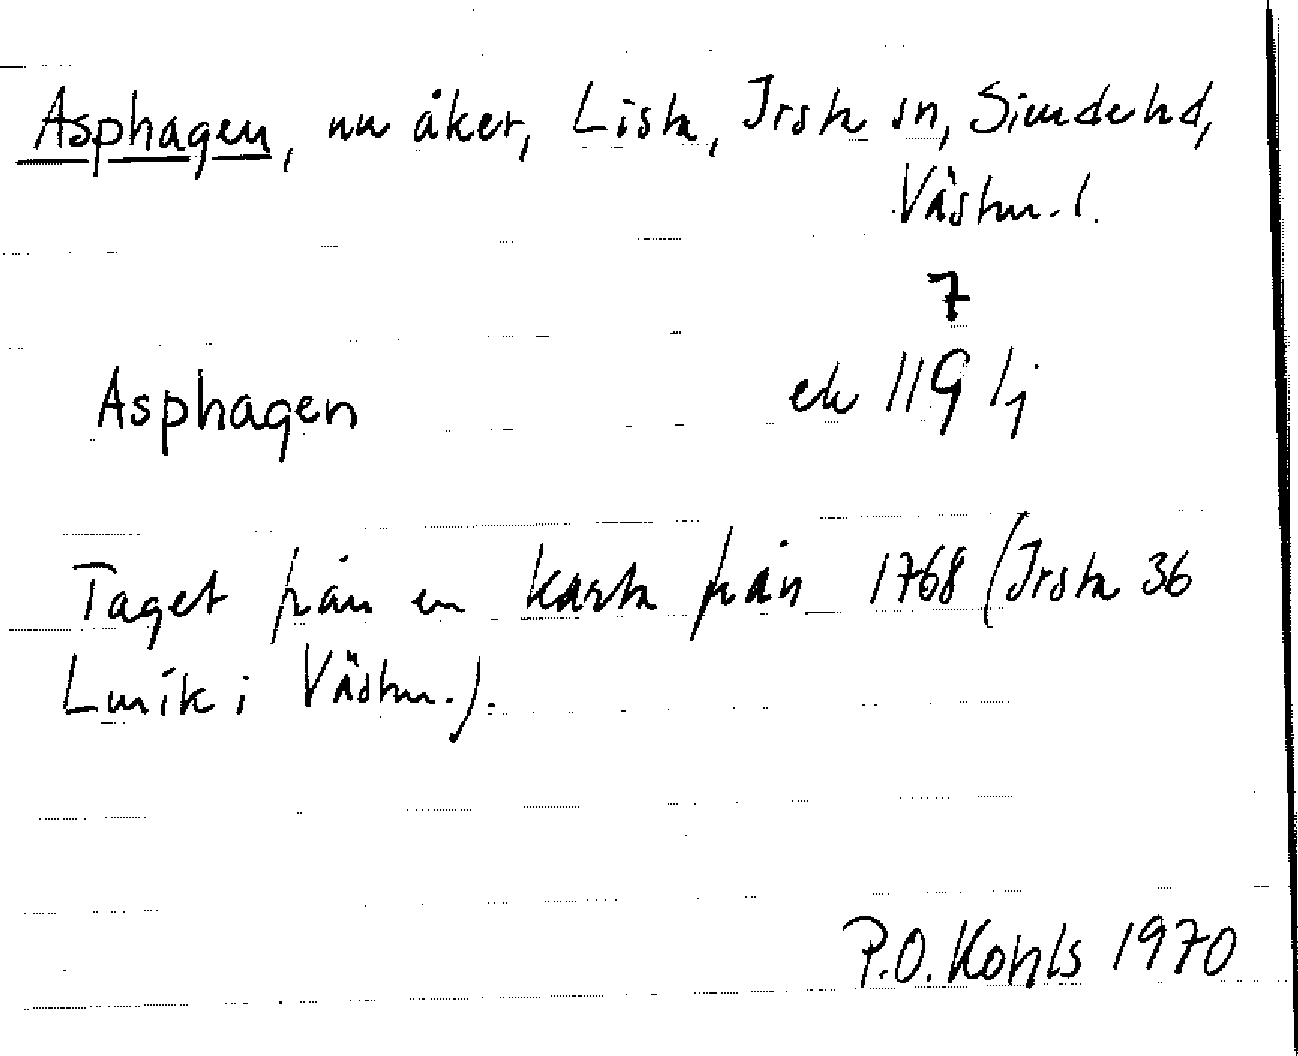 Asphagen, nu åker, Lista, Irsta sn, Siende hd,
Västm. l.
7
Asphagen ek 119 Ij
Taget från en karta från 1768 (Irsta 36
Lmík i Västm.).
P.O. Kohls 1970